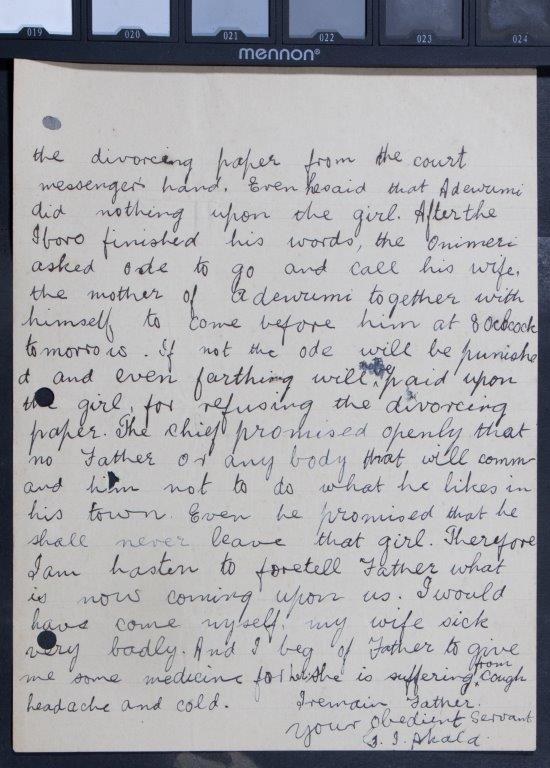 019 020 021 022 023 024
mennon®
the divorceing paper from the court
messenger hand. Even he said that Adewumi
did nothing upon the girl. After the
Iboro finished his words, the Onimeri
asked Ode to go and call his wife,
the mother of Adewumi together with
himself to come before him at 8 Oclocock
tomorrow. If not the ode will be punishe
d and even farthing will be paid upon
the girl, for refusing the divorcing
paper. The chief promised openly that
no Father or any body that will comm
and him not to do what he likes in
his town. Even he promised that he
shall never leave that girl. Therefore
I am hasten to foretell Father what
is now coming upon us. I would
have come myself, my wife sick
very badly. And I beg of Father to give
me some medicine for her. She is suffering from cough
headache and cold. I remain Father.
Your Obedient Servant
J. I. Akala.